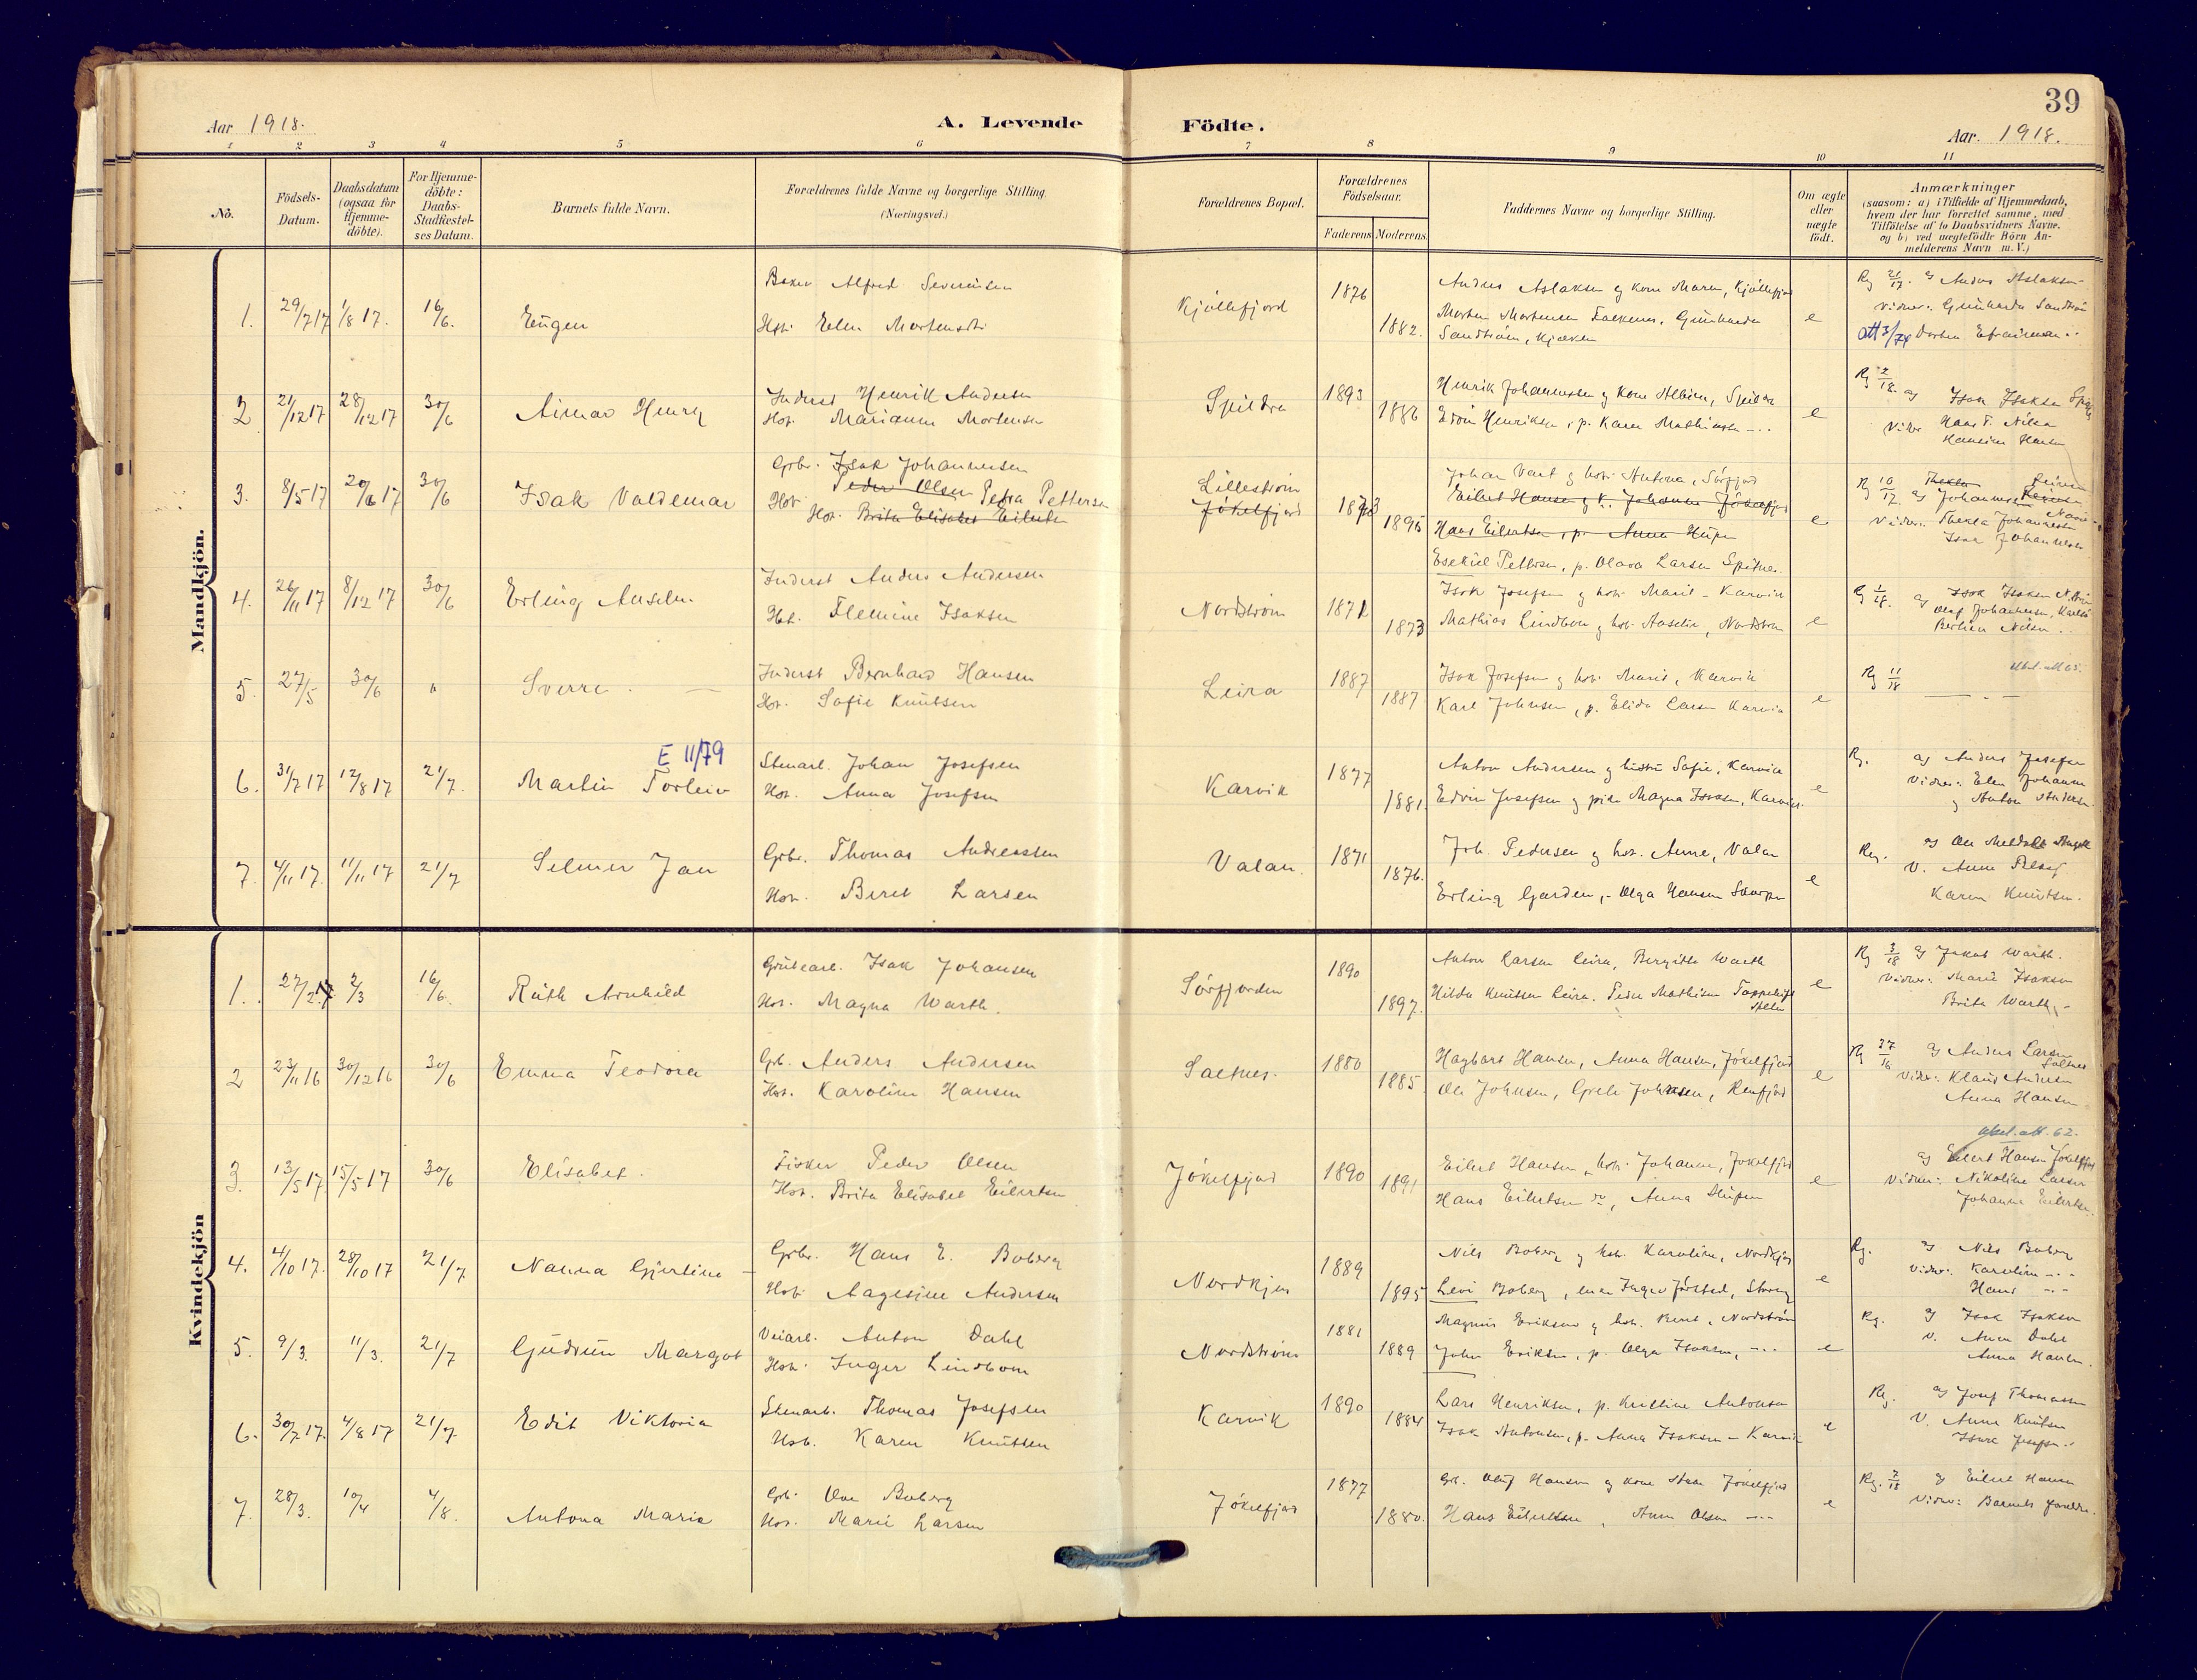 39
Aar 1918.
A. Levende Födte.
Aar. 1918.
1 2 3 4 5 6 7 8 9 10 11
No.
Födsels-Datum.
Daabsdatum (ogsaa for Hjemme-döbte).
For Hjemme-döbte: Daabs-Stadfæstel-ses Datum.
Barnets fulde Navn.
Forældrenes fulde Navne og borgerlige Stilling.
(Næringsvei.)
Forældrenes Bopæl.
Forældrenes Födselsaar.
Faderens Moderens.
Faddernes Navne og borgerlige Stilling.
Om ægte eller uægte födt.
Anmærkninger
(saasom: a) i Tilfælde af Hjemmedaab,
hvem der har forrettet samme, med
Tilföielse af to Daabsvidners Navne.
og b) ved uægtefödte Börn An-
melderens Navn m. V.)
Mandkjön.
1. 29/7 17 1/8 17. 16/6. Eugen
Alfred Severinsen
Hst. Elen Mortensdt.
Kjöllefjord 1876 1882.
Anders Aslaksen og kone Maren, Kjöllefjord
Morten Mortensen
e
Rg 21/17. Anders Aslaksen
Vidner:
2 21/12 17 28/12 17 30/6 Henry
Inderst Henrik Andersen
Hst. Marianne Mortensen
Spildra 1893 1886
Henrik Johannessen og kone Albine, Spildra
Henriksen, p. Karen Mathisen -..
e
Isak Isaksen
Hans
3. 8/5 17 20/6 17 30/6 Isak Valdemar
Gbr. Isak Johannesen
Peder Olsen Petra Pettersen
Hst. Brita Elisabet Eilertsen
Lilleström
Jökelfjord 1895
Johan Vart og hst. Antona, Sörfjord
Eilert Hansen og k. Johanne Jökelfjord
Hans Eilertsen, p. Anna
Esekiel Pettersen, p. Olava Larsen
e
Rg 10/17
Vidner: Thekla Johannessen
Isak Johannesen
4. 26/11 17 8/12 17 30/6 Erling Anselm.
Inderst Anders Andersen
Hst. Flemine Isaksen
Nordström 1871 1873
Isak Josefsen og hst. Marit - Karvik
Mathias Lindbom og hst. Anselie, Nordström
e
Isak Isaksen
Olaf Johannesen,
5. 27/5 30/6 " Sverre.
Inderst Bernhard Hansen
Hst. Sofie Knutsen
Leira 1887 1887
Isak Josefsen og hst. Marit, Karvik
Karl Johnsen, p. Elida Larsen Karvik
e
Rg 11/18
E 11/79
6. 31/7 17 12/8 17 21/7. Martin Torleiv
Stenarb. Johan Josefsen
Hst. Anna Josefsen
Karvik 1877 1881.
Anton Andersen og hustru Sofie, Karvik
Edvin Josefsen og pike Magna Isaksen, Karvik
e
Rg. Anders Josefsen
Vidner: Elen Johanne
og Anton Andersen.
7. 4/11 17. 11/11 17 21/7 Selmer Jan
Gbr. Thomas Andreassen
Hst. Beret Larsen
Valan. 1871 1876.
Joh. Pedersen og hst. Anne, Valan
Erling Garden, - Olga Hansen
e
Rg.
V. Anne
Karen Knutsen.
Kvindekjön
1. 27/2 2/3 16/6. Ruth Arnhild
Isak Johansen
Hst. Magna Warth.
Sörfjorden 1890 1897.
Anton Larsen Leira, Bergitte Warth
Hilda Knutsen Leira. Peder Mathisen
e
Rg 3/18 Jakob Warth.
Vidner: Marie Isaksen
Brita Warth.
2 23/11 16 30/12 16 30/6 Emma Teodora
Gb. Anders Andersen
Hst. Karoline Hansen
Saltnes. 1880 1885
Hagbart Hansen, Anna Hansen, Jökelfjord
Ole Johnsen, Grete Johnsen,
e
Rg 37/16 Anders Larsen
Saltnes
Vidner: Klaus Andersen
Anna Hansen
3. 13/5 17 15/5 17 30/6 Elisabet.
Fisker Peder Olsen
Hst. Brita Elisabet Eilertsen
Jökelfjord 1890 1891
Eilert Hansen, hst. Johanne, Jökelfjord
Hans Eilertsen, Anna
e
Eilert Hansen Jökelfjord
Vidner: Nikoline Larsen
Johanne Eilertsen.
4. 4/10 17. 28/10 17 21/7. Nanna Gjertine
Gbr. Hans E. Boberg
Hst. Aagesine Andersen
Nordkjos 1889 1895
Nils Boberg og hst. Karoline, Nordkjos
Levi Boberg,
e
Rg. Nils Boberg
Vidner: Karoline -..
Hans -..
5. 9/3. 11/3. 21/7 Gudrun Margot
Veiarb. Anton Dahl
Hst. Inger Lindbom
Nordström 1881 1889
Magnus Eriksen og hst. Beret, Nordström
John Eriksen, p. Olga Isaksen, -..
e
Rg. Isak Isaksen
V. Anna Dahl
Anna Hansen.
6. 30/7 17. 4/8 17 21/7. Edit Viktoria
Stenarb. Thomas Josefsen
Hst. Karen Knutsen
Karvik 1890 1884
Lars Henriksen, p. Kristine Antonsen
Isak Antonsen, p. Anna Isaksen - Karvik
e
Rg. Josef Thomassen
V. Anne Knutsen
7. 28/3. 10/4 4/8. Antona Marie
Gb. Ole Boberg
Hst. Marie Larsen
Jökelfjord 1877 1880.
Gb. Oluf Hansen og kone Jökelfjord
Hans Eilertsen, Anne Olsen -..
e
Rg. 7/18 Eilert Hansen
Vidner: Barnets foreldre.